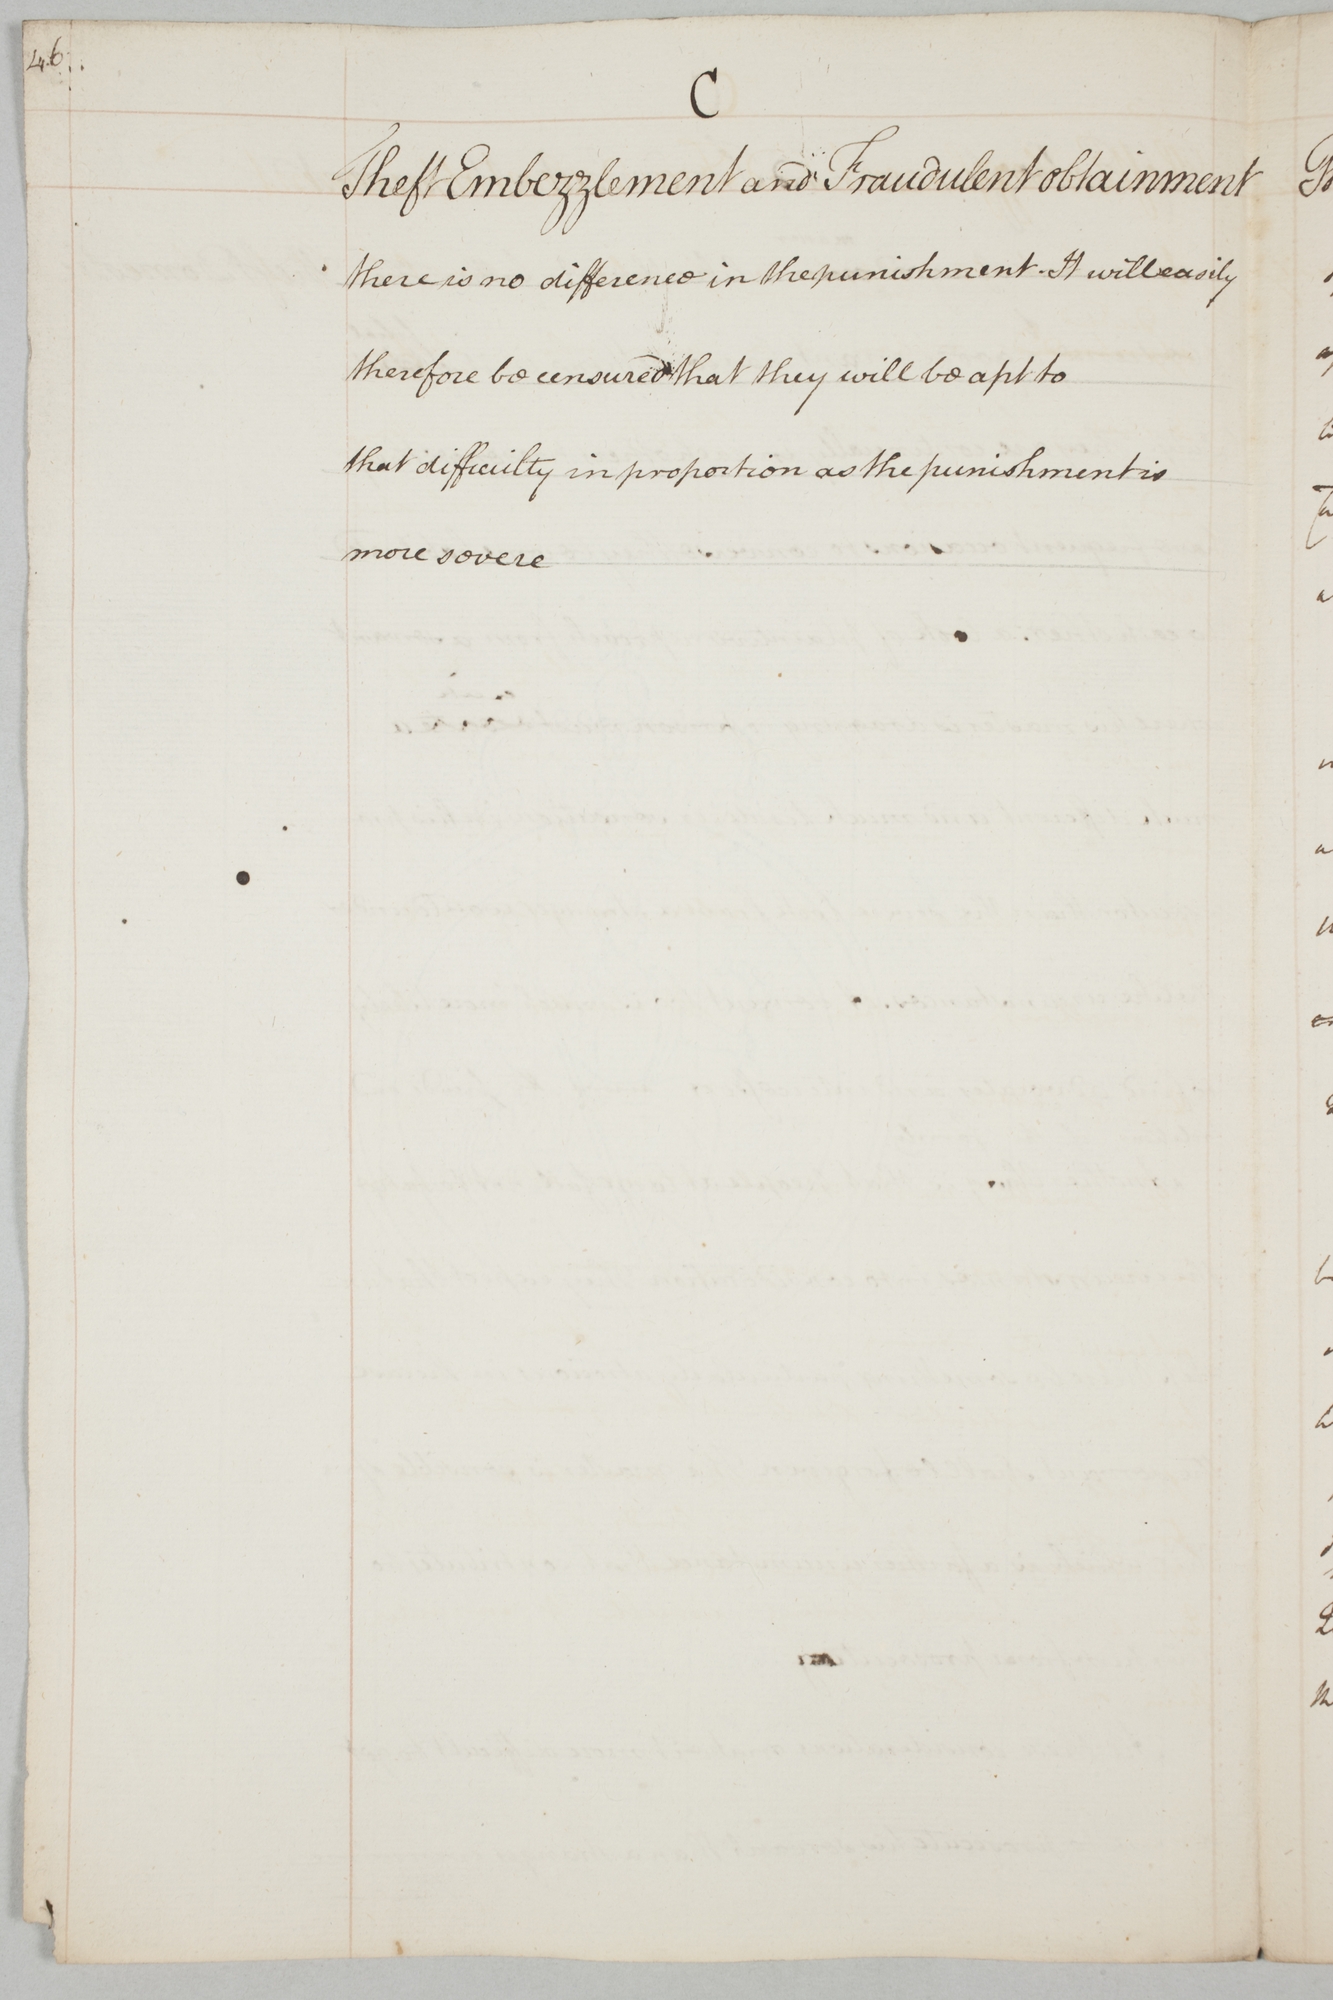 46.
C
Theft Embezzlement and Fraudulent obtainment
there is no difference in the punishment. It will easily
therefore be censured that they will be apt to
that difficulty in proportion as the punishment is
more severe